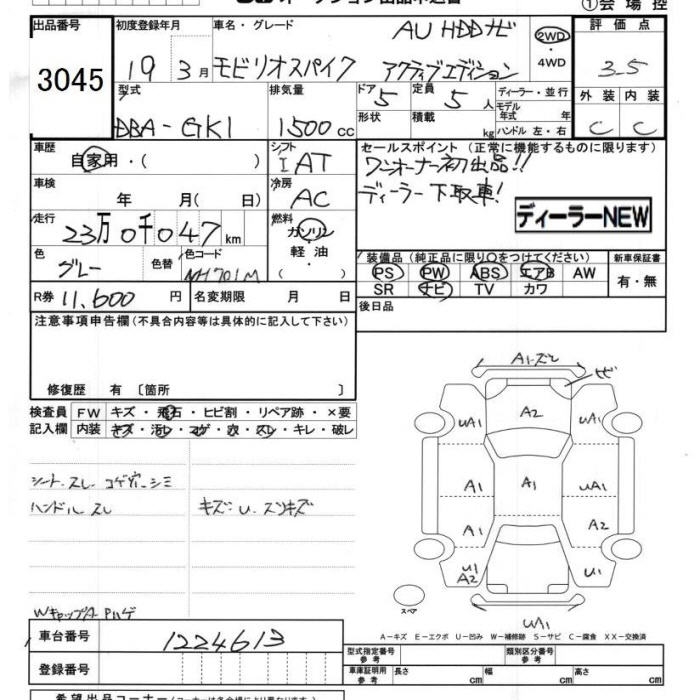 ①会場控
出品番号 初度登録年月 車名・グレード 評価点
3045
19 3月 モビリオスパイク AU HDDナビ アクティブエディション
2WD
・4WD
3.5
型式 排気量 ドア 5 定員 5人 ディーラー・並行 外装 内装
DBA-GK1 1500cc
形状 積載 kg モデル年式 年 ハンドル 左・右 C C
車歴 シフト セールスポイント(正常に機能するものに限ります)
自家用・( ) I AT ワンオーナー初出品!!
車検 冷房 ディーラー下取車!
年 月( 日) AC
ディーラーNEW
走行 燃料
23万0千047km ガソリン・軽油・( )
色 色替 色コード 装備品(純正品に限り○をつけてください) 新車保証書
グレー NH701M PS PW ABS エアB AW 有・無
SR ナビ TV カワ
R券 11,600円 名変期限 月 日 後日品
注意事項申告欄(不具合内容等は具体的に記入して下さい)
修復歴 有〔箇所 〕
検査員 FW キズ・飛石・ヒビ割・リペア跡・×要
記入欄 内装 キズ・汚レ・コゲ・穴・スレ・キレ・破レ
シート.スレ コゲ穴.シミ
ハンドル スレ キズ:U.スリキズ
WキャップA Pハゲ
A1.ズレ
ヒビ
UA1 A2 UA1
A1 A1 UA1
A1 A2
U1 U1
A2
スペア
UA1
A－キズ E－エクボ U－凹み W－補修跡 S－サビ C－腐食 XX－交換済
車台番号 1224613
登録番号
型式指定番号 参考 類別区分番号 参考
車庫証明用 参考 長さ cm 幅 cm 高さ cm
希望出品コーナー